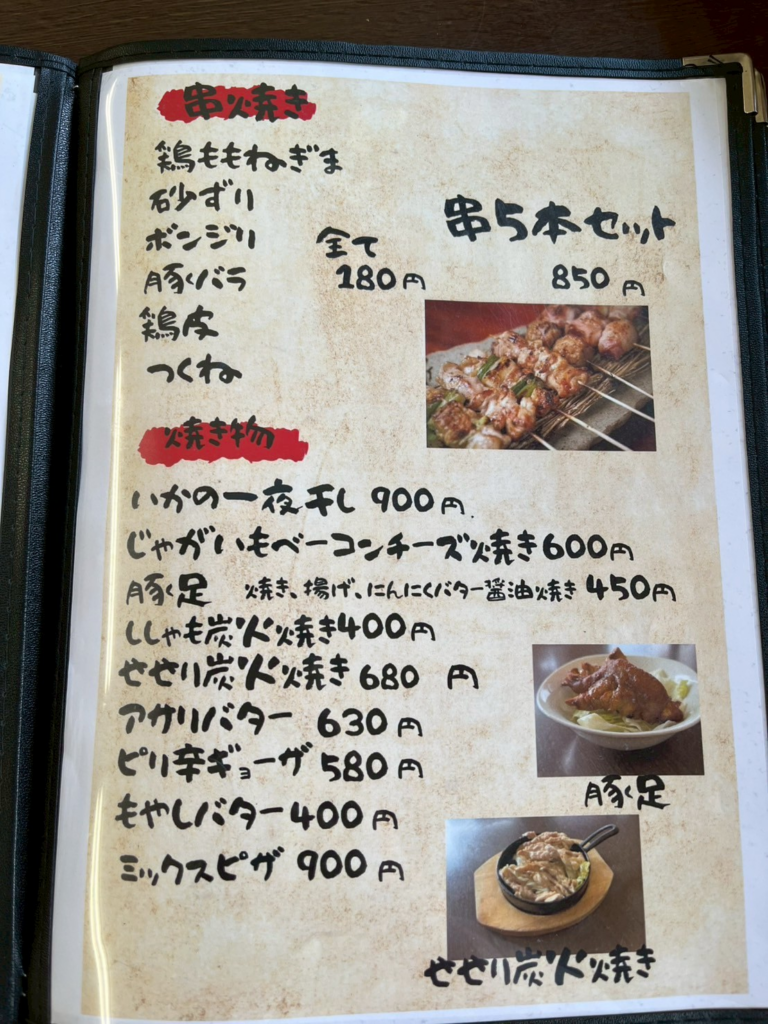 串焼き
鶏ももねぎま
砂ずり
ボンジリ
豚バラ
鶏皮
つくね
全て
180円
串5本セット
850円
焼き物
いかの一夜干し 900円
じゃがいもベーコンチーズ焼き600円
豚足 焼き、揚げ、にんにくバター醤油焼き 450円
ししゃも炭火焼き400円
せせり炭火焼き 680 円
アサリバター 630円
ピリ辛ギョーザ 580円
もやしバター400円
ミックスピザ 900円
豚足
せせり炭火焼き